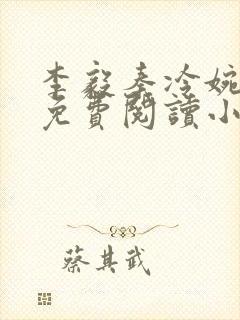 李毅秦冷婉
免費閱讀小
蔡其武